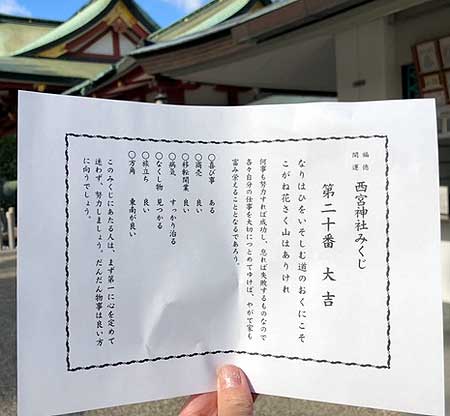 福徳
開運
西宮神社みくじ
第二十番 大吉
なりはひをいそしむ道のおくにこそ
こがね花さく山はありけれ
何事も努力すれば成功し、怠れば失敗するものなので
各々自分の仕事を大切につとめてゆけば、やがて家も
富み栄えることとなるであろう。
○喜び事 ある
○商売 良い
○移転開業 良い
○病気 すっかり治る
○なくし物 見つかる
○旅立ち 良い
○方角 東南が良い
このみくじにあたる人は、まず第一に心を定めて
迷わず、努力しましょう。だんだん物事は良い方
に向うでしょう。